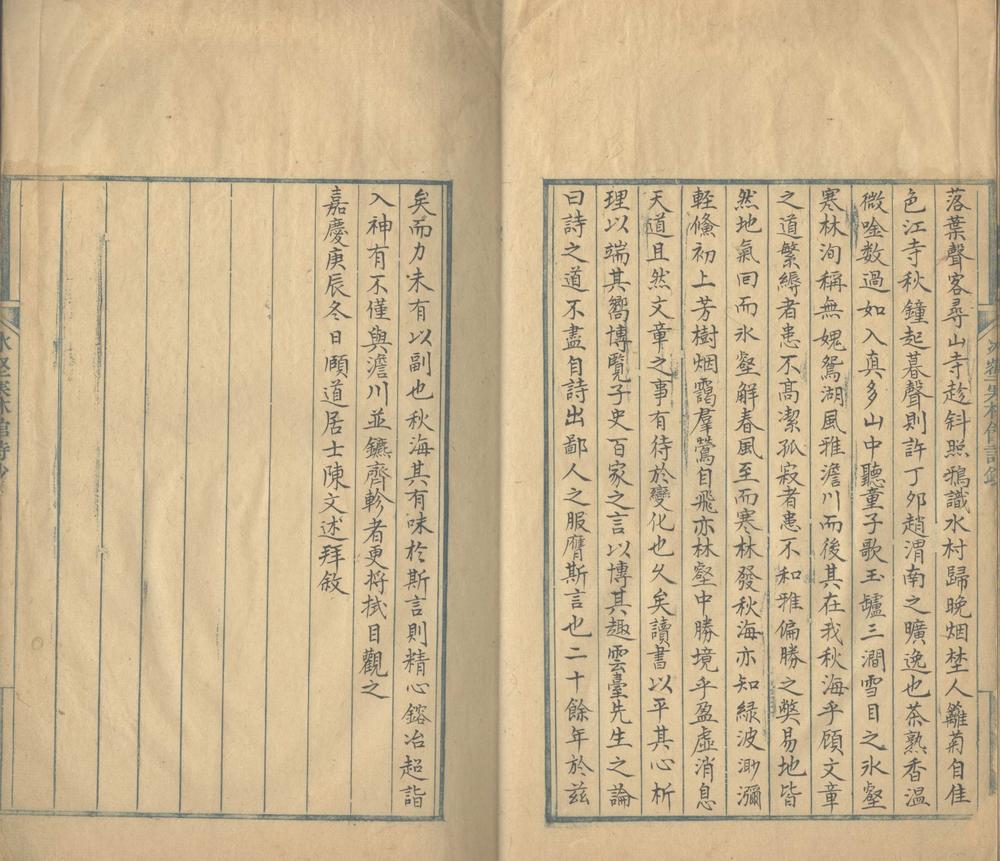 落葉聲客尋山寺趁斜照鴉識水村歸晚烟埜人籬菊自佳
色江寺秋鐘起暮聲則許丁夘趙渭南之曠逸也茶熟香温
微唫数過如入真多山中聽童子歌玉罏三澗雪目之氷壑
寒林洵稱無媿鴛湖風雅澹川而後其在我秋海乎顧文章
之道繁縟者患不髙潔孤寂者患不和雅偏勝之獘易地皆
然地氣回而氷壑解春風至而寒林發秋海亦知緑波渺瀰
輕鯈初上芳樹烟靄羣鶯自飛亦林壑中勝境乎盈虛消息
天道且然文章之事有待於變化也久矣讀書以平其心析
理以端其嚮博覽子史百家之言以博其趣雲臺先生之論
曰詩之道不盡自詩出鄙人之服膺斯言也二十餘年於兹
矣而力未有以副也秋海其有味於斯言則精心鎔冶超詣
入神有不僅與澹川並鑣齊軫者更将拭目觀之
嘉慶庚辰冬日頤道居士陳文述拜敘